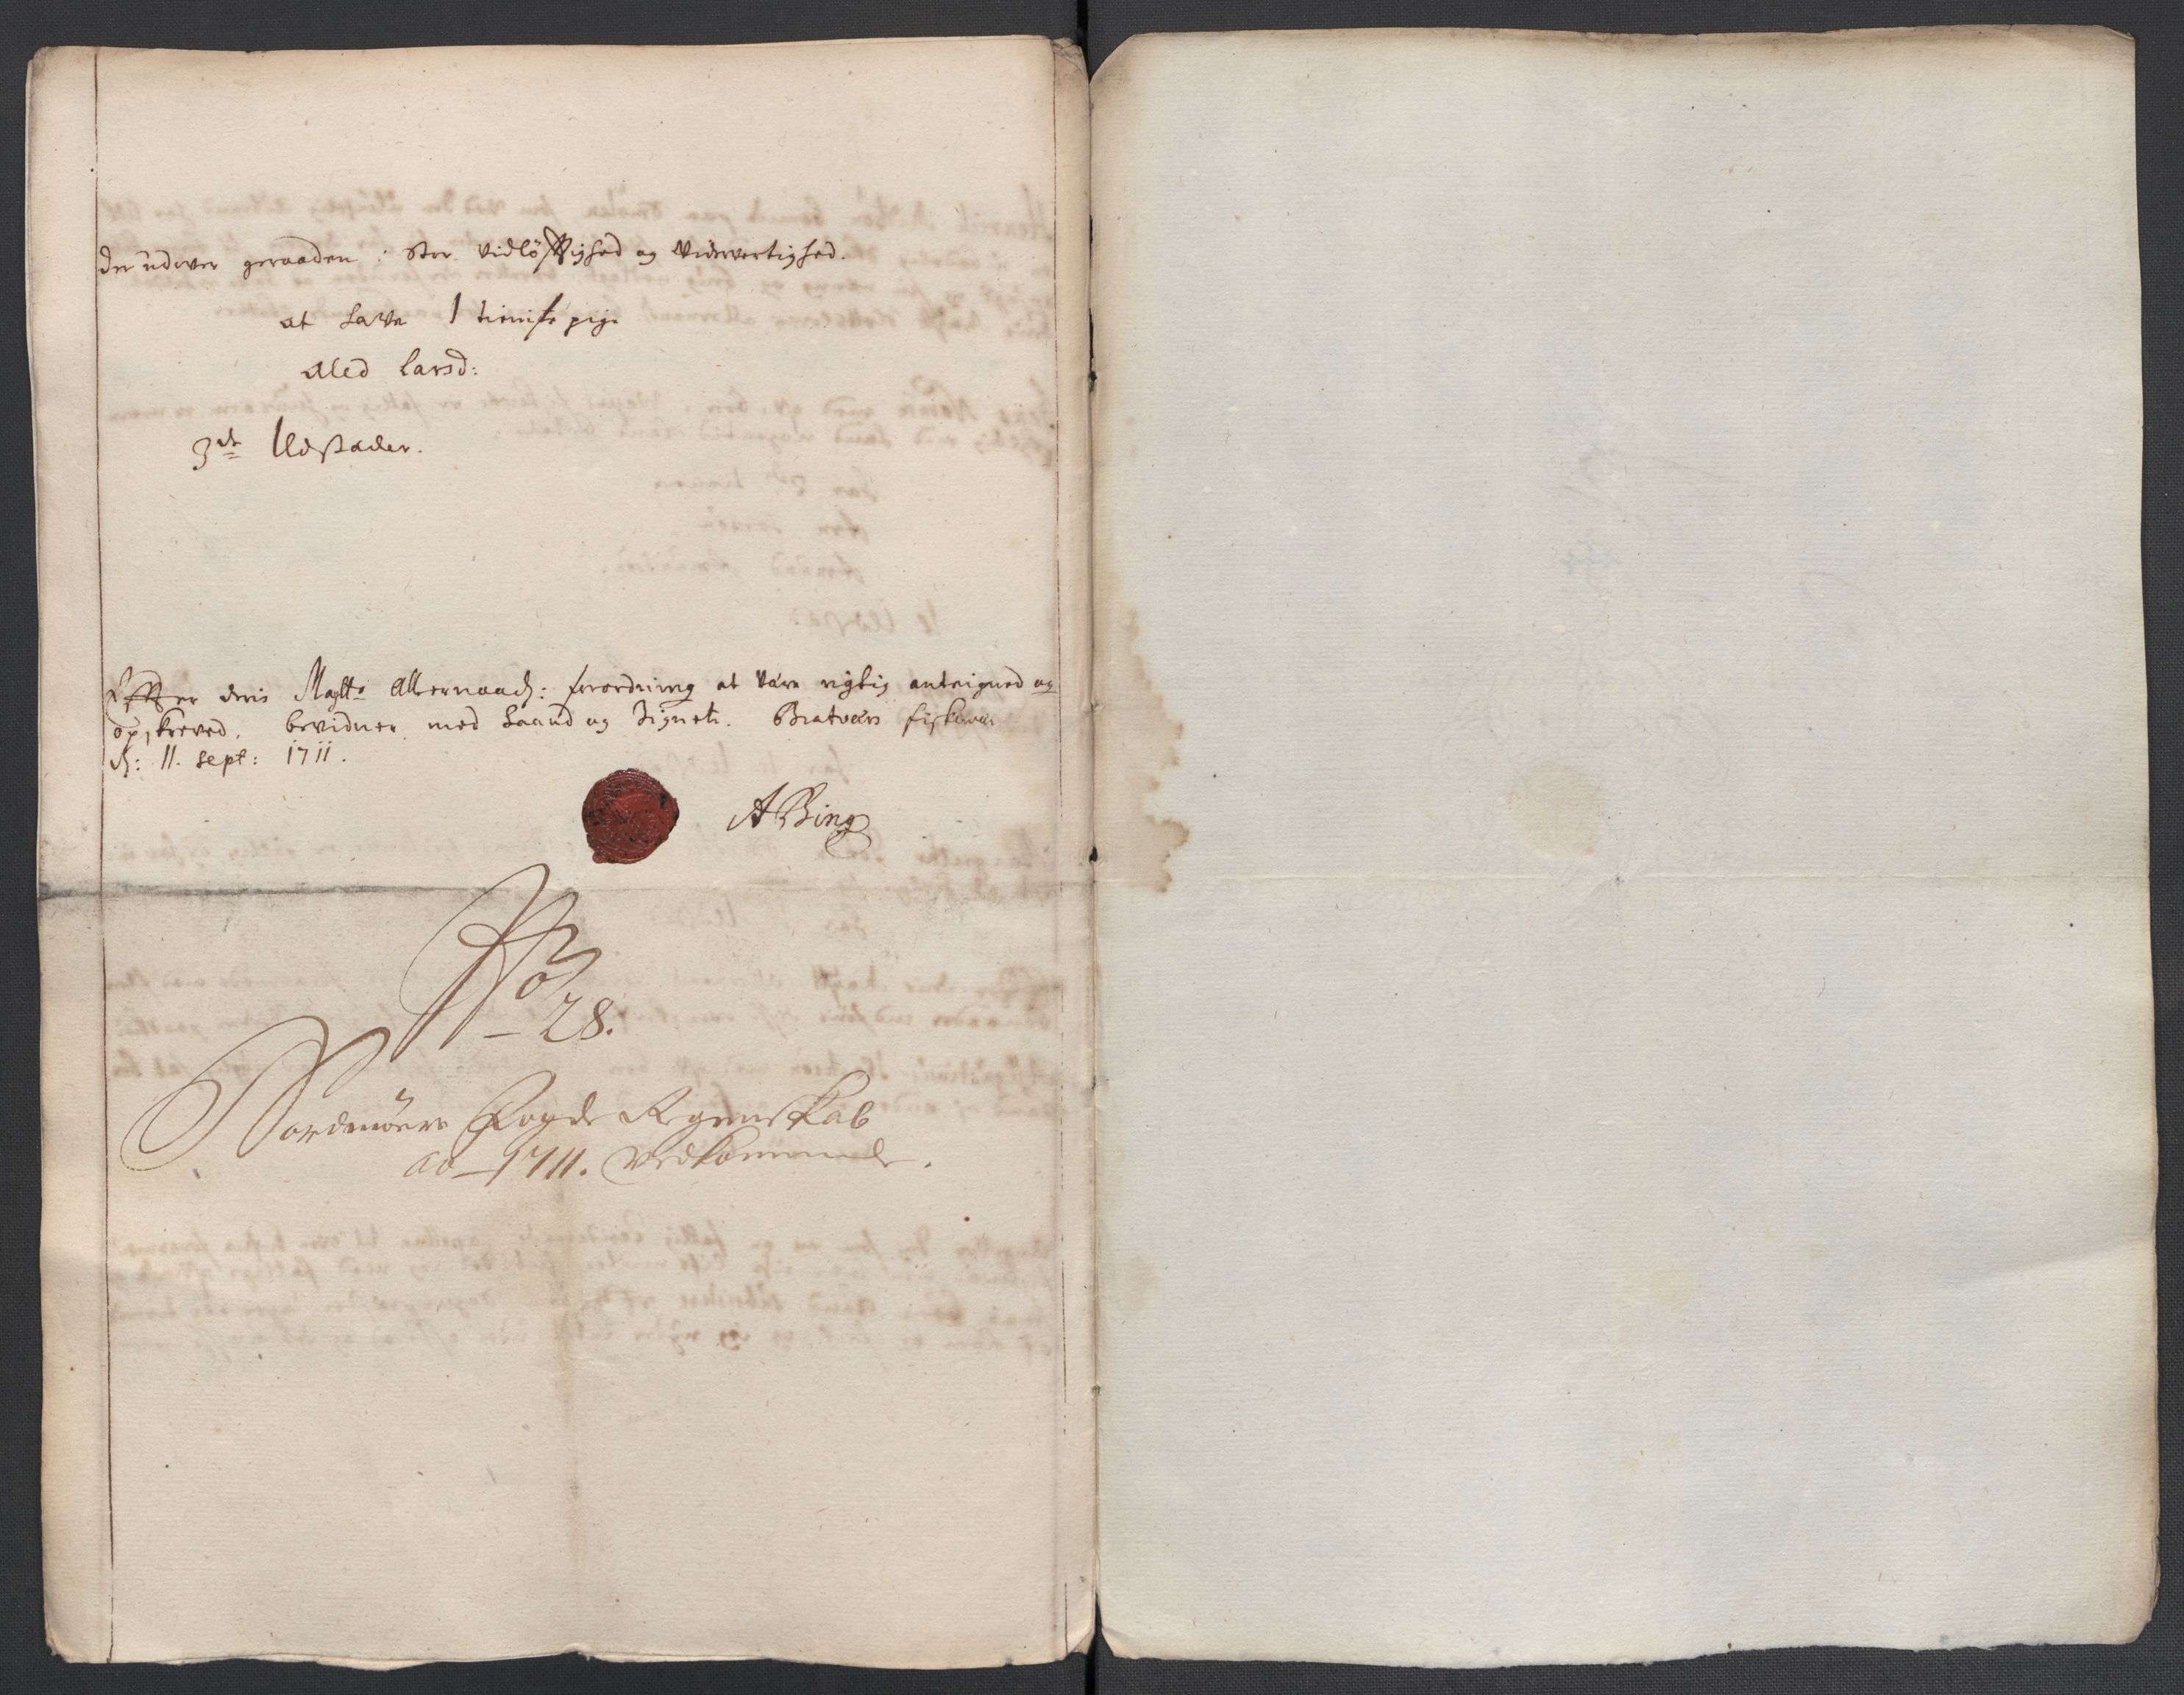 der udover geraaden i stor vidløftighed og Viderwertighed.
at have 1 tieniste pige
Aled Larsd:
3de Ildstæder.
Effter deris Maytts Allernaad: forordning at Være rigtig anteigned og
opskreved, bevidner med haand og Signete. Bratvær fiskevær
d: 11. sept: 1711.
ABing
No
28.
Nordmøers Fogde Regenskab
ao 1711. Vedkommende.